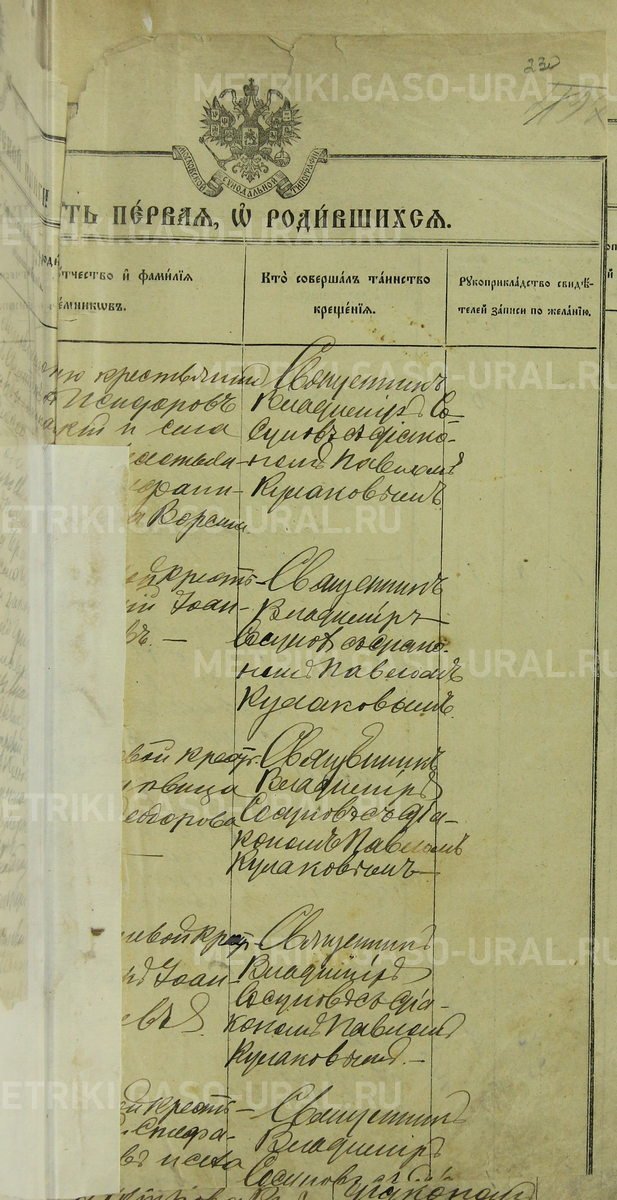 230
МОСКОВСКОЙ СѴНОДАЛЬНОЙ ТИПОГРАФІИ
ТЬ ПЕ́РВАЯ, Ѡ҆ РОДИ́ВШИХСЯ.
ТЧЕСТВО И҆ ФАМИ́ЛІЯ
Е́МНИКѠВЪ.
КТО̀ СОВЕРША́ЛЪ ТА́ИНСТВО
КРЕЩЕ́НІЯ.
РУКОПРИКЛА́ДСТВО СВИДѢ́-
ТЕЛЕЙ ЗА́ПИСИ ПО ЖЕЛА́НІЮ.
Исидоровъ
и села
Священникъ
Владиміръ Со-
суновъ съ діако-
номъ Павломъ
Кулаковымъ
й крест-
Іоан-
въ. —
Священникъ
Владиміръ
Сосуновъ съ діако-
номъ Павломъ
Кулаковымъ.
вой крест.
вица
еодорова
Священникъ
Владиміръ
Сосуновъ съ діа-
кономъ Павломъ
Кулаковымъ —
евой крест.
ъ Іоан-
евъ.
Священникъ
Владиміръ
Сосуновъ съ діа-
кономъ Павломъ
Кулаковымъ. —
й крест-
Стефа-
въ и села
Священникъ
Владиміръ
Сосуновъ съ
діакономъ
METRIKI.GASO-URAL.RU